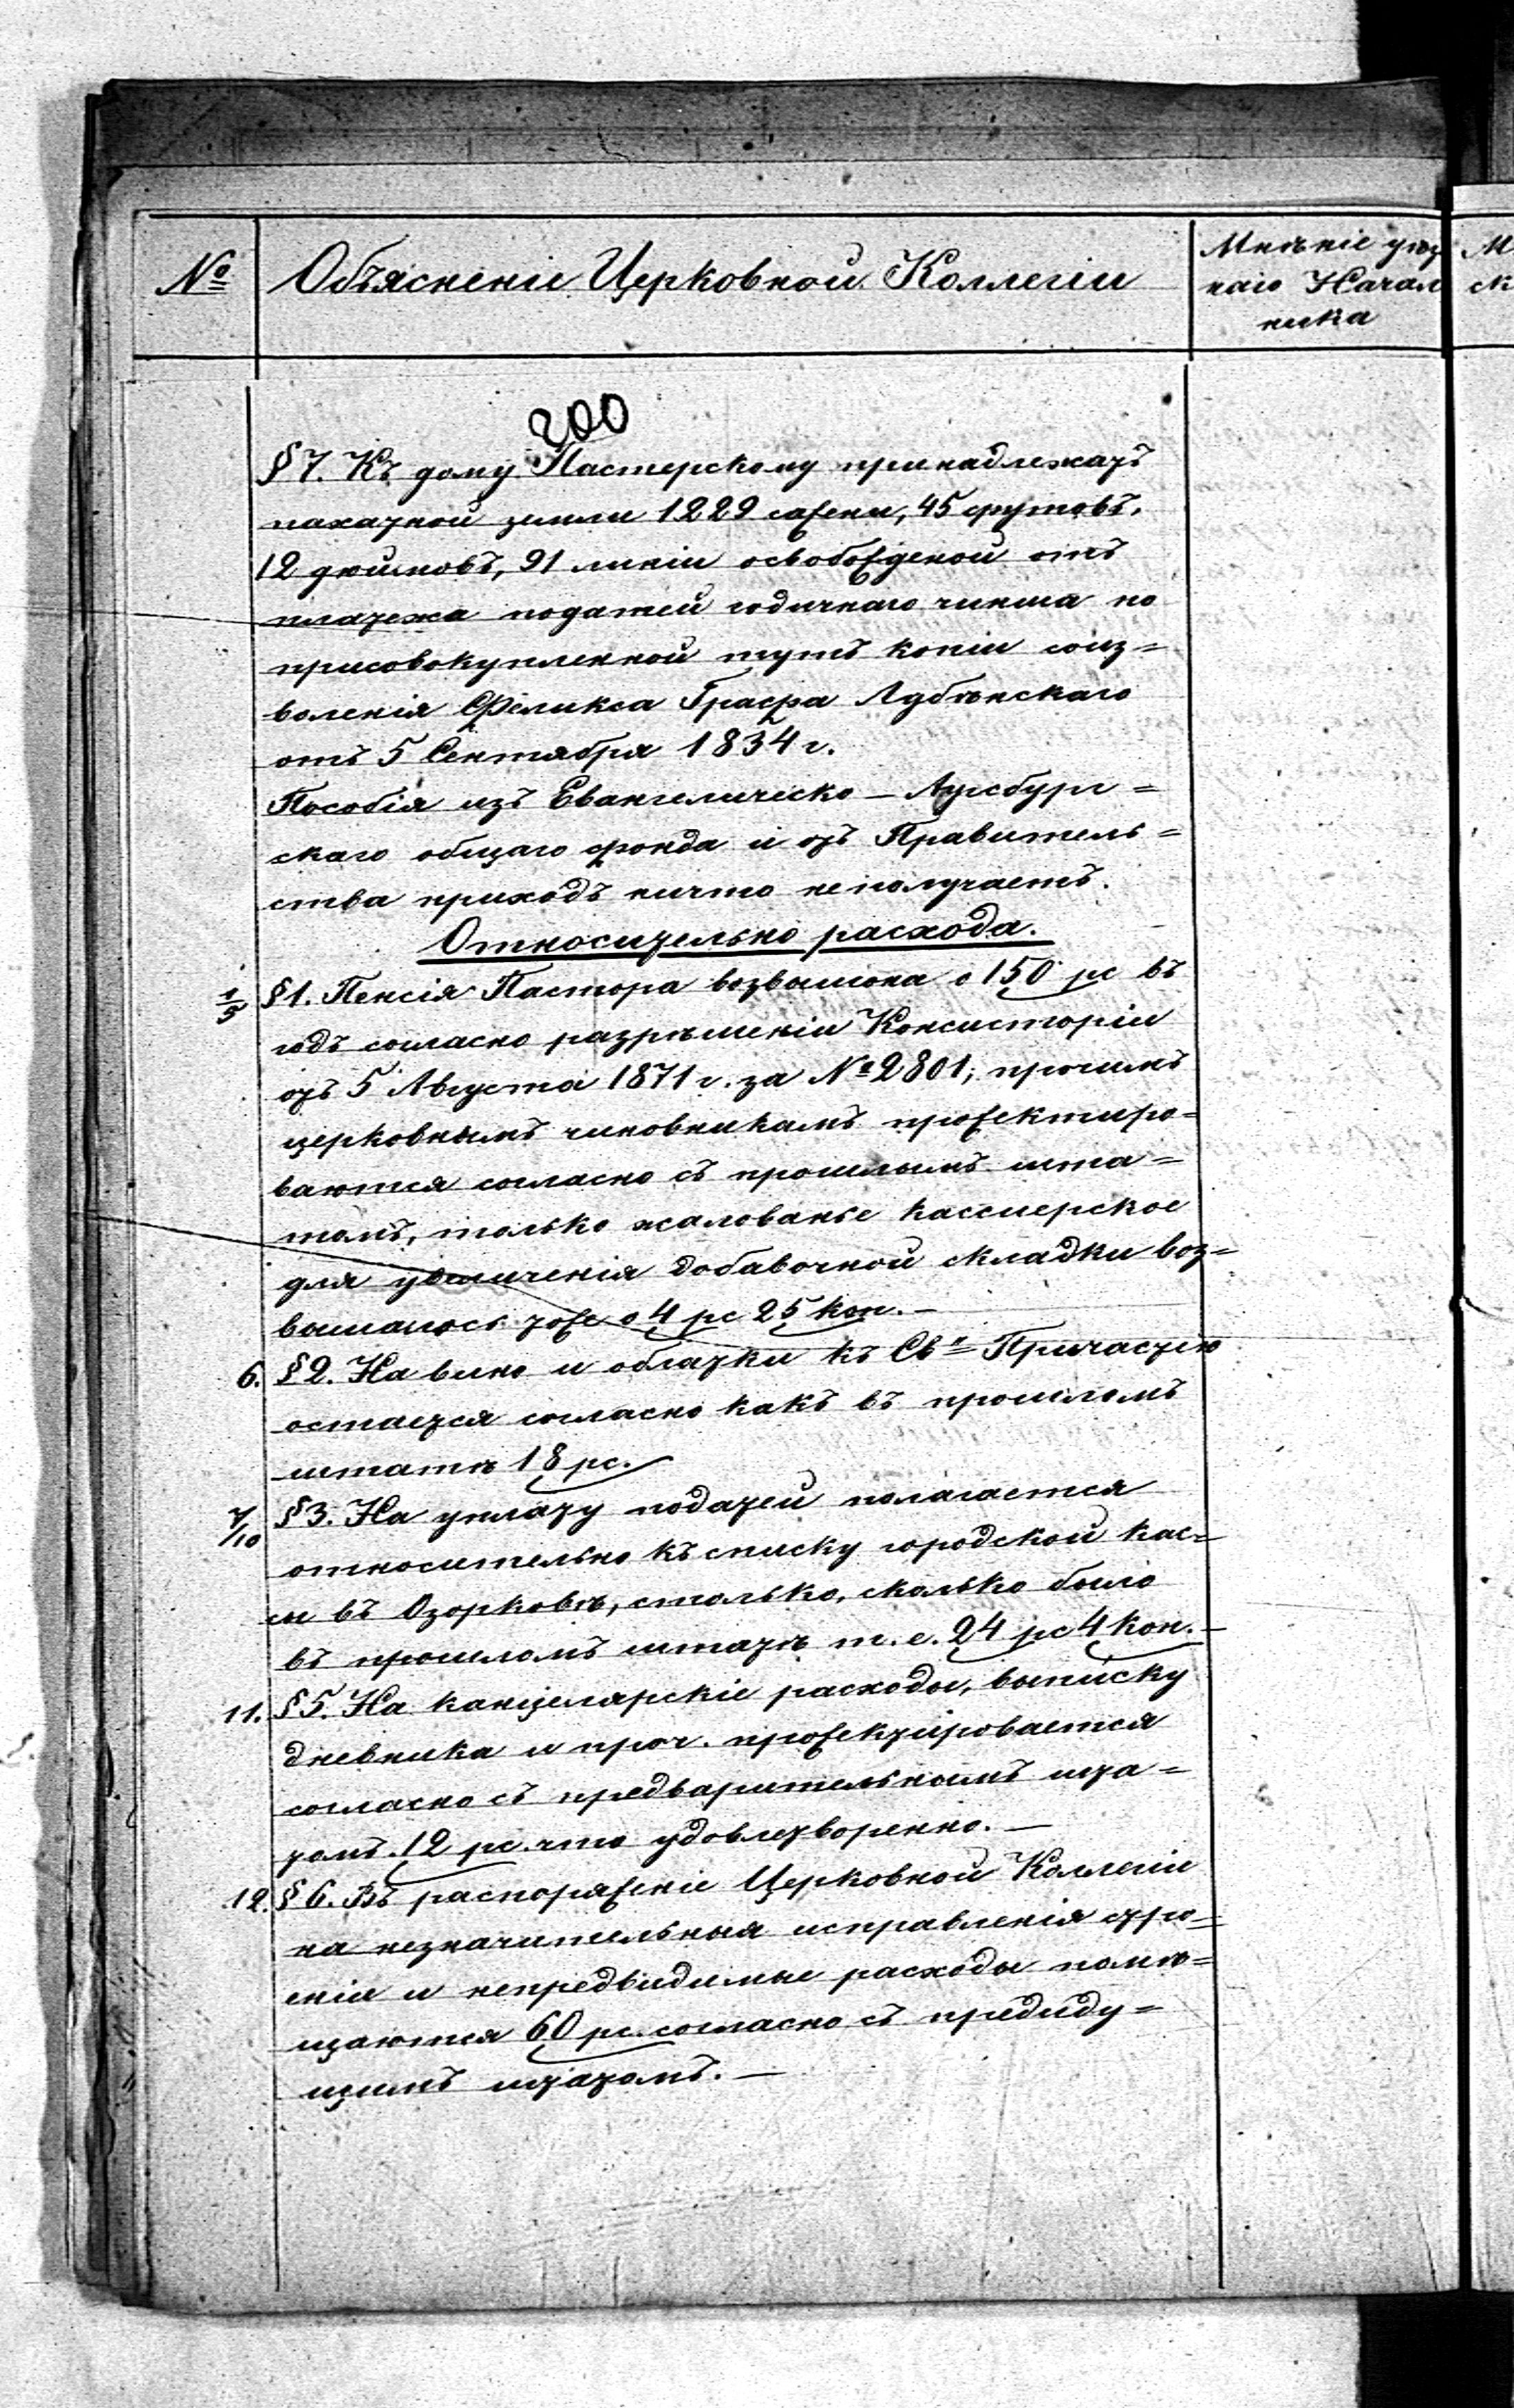 №
Объясненіе Церковной Коллегіи
Мнѣніе уѣзд
наго Начал
ника
М
ск
200
§ 7. Къ дому Пастерскому принадлежатъ
пахатной земли 1229 сажени, 45 футовъ,
12 дюймовъ, 91 линіи освобожденой отъ
платежа податей годичнаго чинша по
присовокупленной тутъ копіи соиз=
воленія Феликса Графа Лубѣнскаго
отъ 5 Сентября 1834 г.
Пособія изъ Евангелическо-Аугсбург=
скаго общаго фонда и отъ Правитель=
ства приходъ ничто неполучаетъ.
Относительно расхода.
1/5 § 1. Пенсія Пастора возвышона о 150 рс въ
годъ согласно разрѣшеніи Консисторіи
отъ 5 Августа 1871 г. за № 2801; прочимъ
церковнымъ чиновникамъ прожектиро=
ваются согласно съ прошлымъ шта=
томъ, только жалованье кассиерское
для увеличенія добавочной складки воз=
вышалось тоже о 4 рс 25 коп. —
6. § 2. На вино и облатки къ Св. Причастію
остается согласно какъ въ прошломъ
штатѣ 18 рс.
7/10 § 3. На уплату податей полагается
относительно къ списку городской кас=
сы въ Озорковѣ, столько, сколько было
въ прошломъ штатѣ т. е. 24 рс 4 коп. —
11. § 5. На канцелярскіе расходы, выписку
дневника и проч. прожектировается
согласно съ предварительнымъ шта=
томъ. 12 рс. что удовлетворенно. —
12. § 6. Въ распоряженіе Церковной Коллегіи
на незначительныя исправленія стро=
еніи и непредвидимые расходы помѣ=
щаются 60 рс. согласно съ предиду=
щимъ штатомъ. —